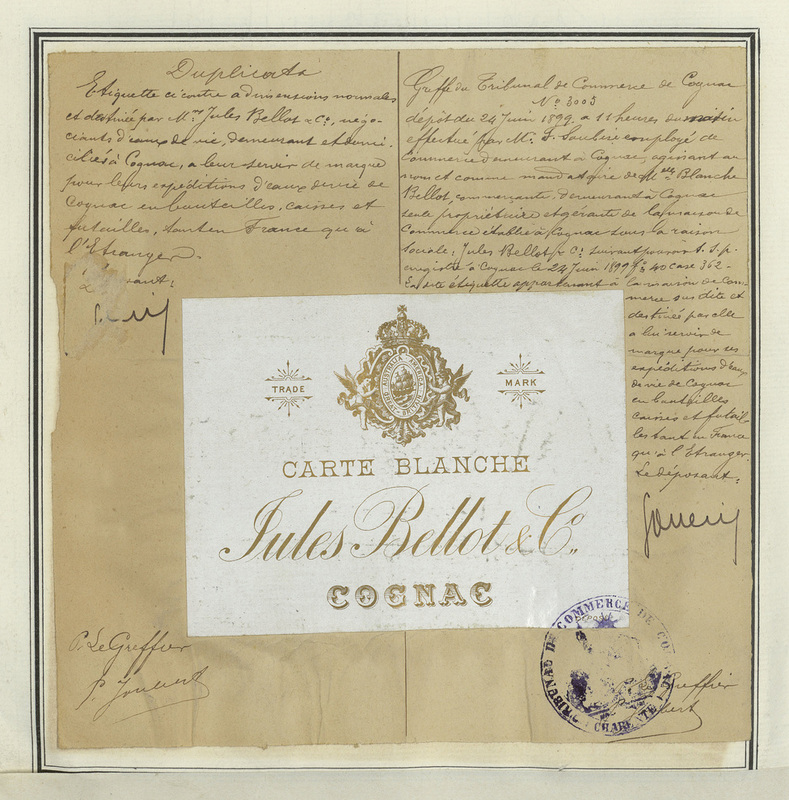 Duplicata
Etiquette ci contre a dimensions normales
et destinée par Mrs Jules Bellot & Co, négo-
ciants d'eaux de vie, demeurant et domi-
ciliés à Cognac, a leur servir de marque
pour leurs expéditions d'eaux de vie de
Cognac en bouteilles, caisses et
futailles, tant en France qu'à
l'Etranger.
Greffe du Tribunal de Commerce de Cognac
No 3003
dépôt du 24 Juin 1899 a 11 heures du matin
effectué par M. employé de
Commerce demeurant à Cognac, agissant au
nom et comme mandataire de Blanche
Bellot, commerçante, demeurant à Cognac
seule propriétaire et gérante de la maison de
Commerce établie à Cognac sous la raison
sociale: Jules Bellot & Co suivant pouvoir s.s.p.
enregistré à Cognac le 24 Juin 1899 fo 40 case 362-
La dite étiquette appartenant à la maison de Com-
merce sus dite et
destinée par elle
a lui servir de
marque pour ses
expéditions d'eaux
de vie de Cognac
en bouteilles
caisses et futail-
les tant en France
qu'à l'Etranger.
Le déposant:
TRADE
MARK
AUSTRALIA AMERICA
CARTE BLANCHE
Jules Bellot & Co.,
COGNAC
P. Le Greffier
P. Joubert
TRIBUNAL DE COMMERCE DE CO
CHARENTE
Greffier